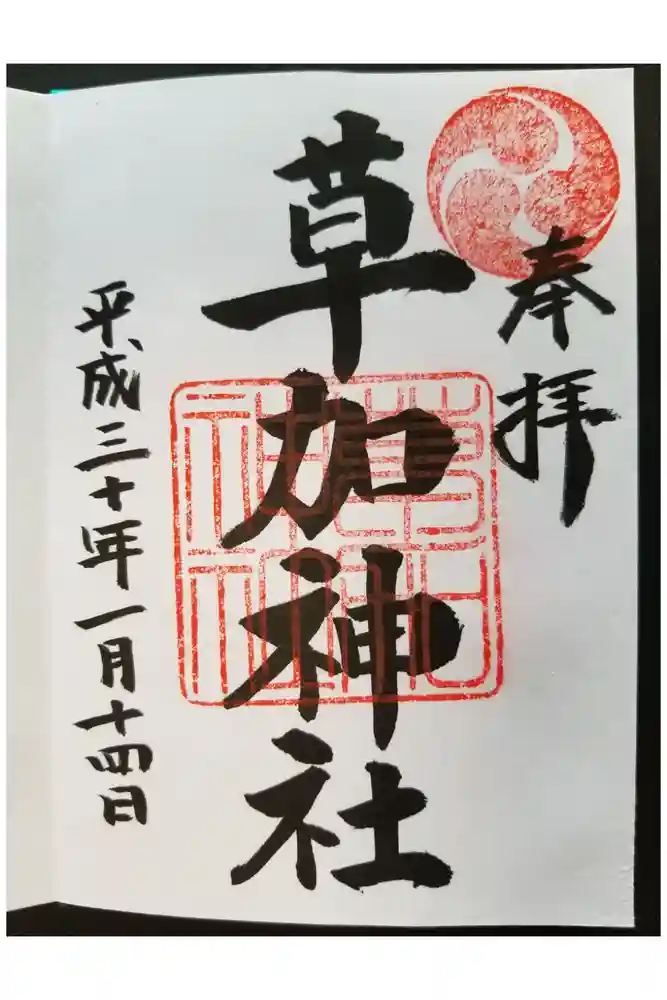 奉拝
草加神社
平成三十年一月十四日